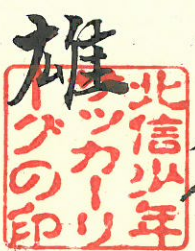 雄
北信少年
サッカーリ
ーグの印